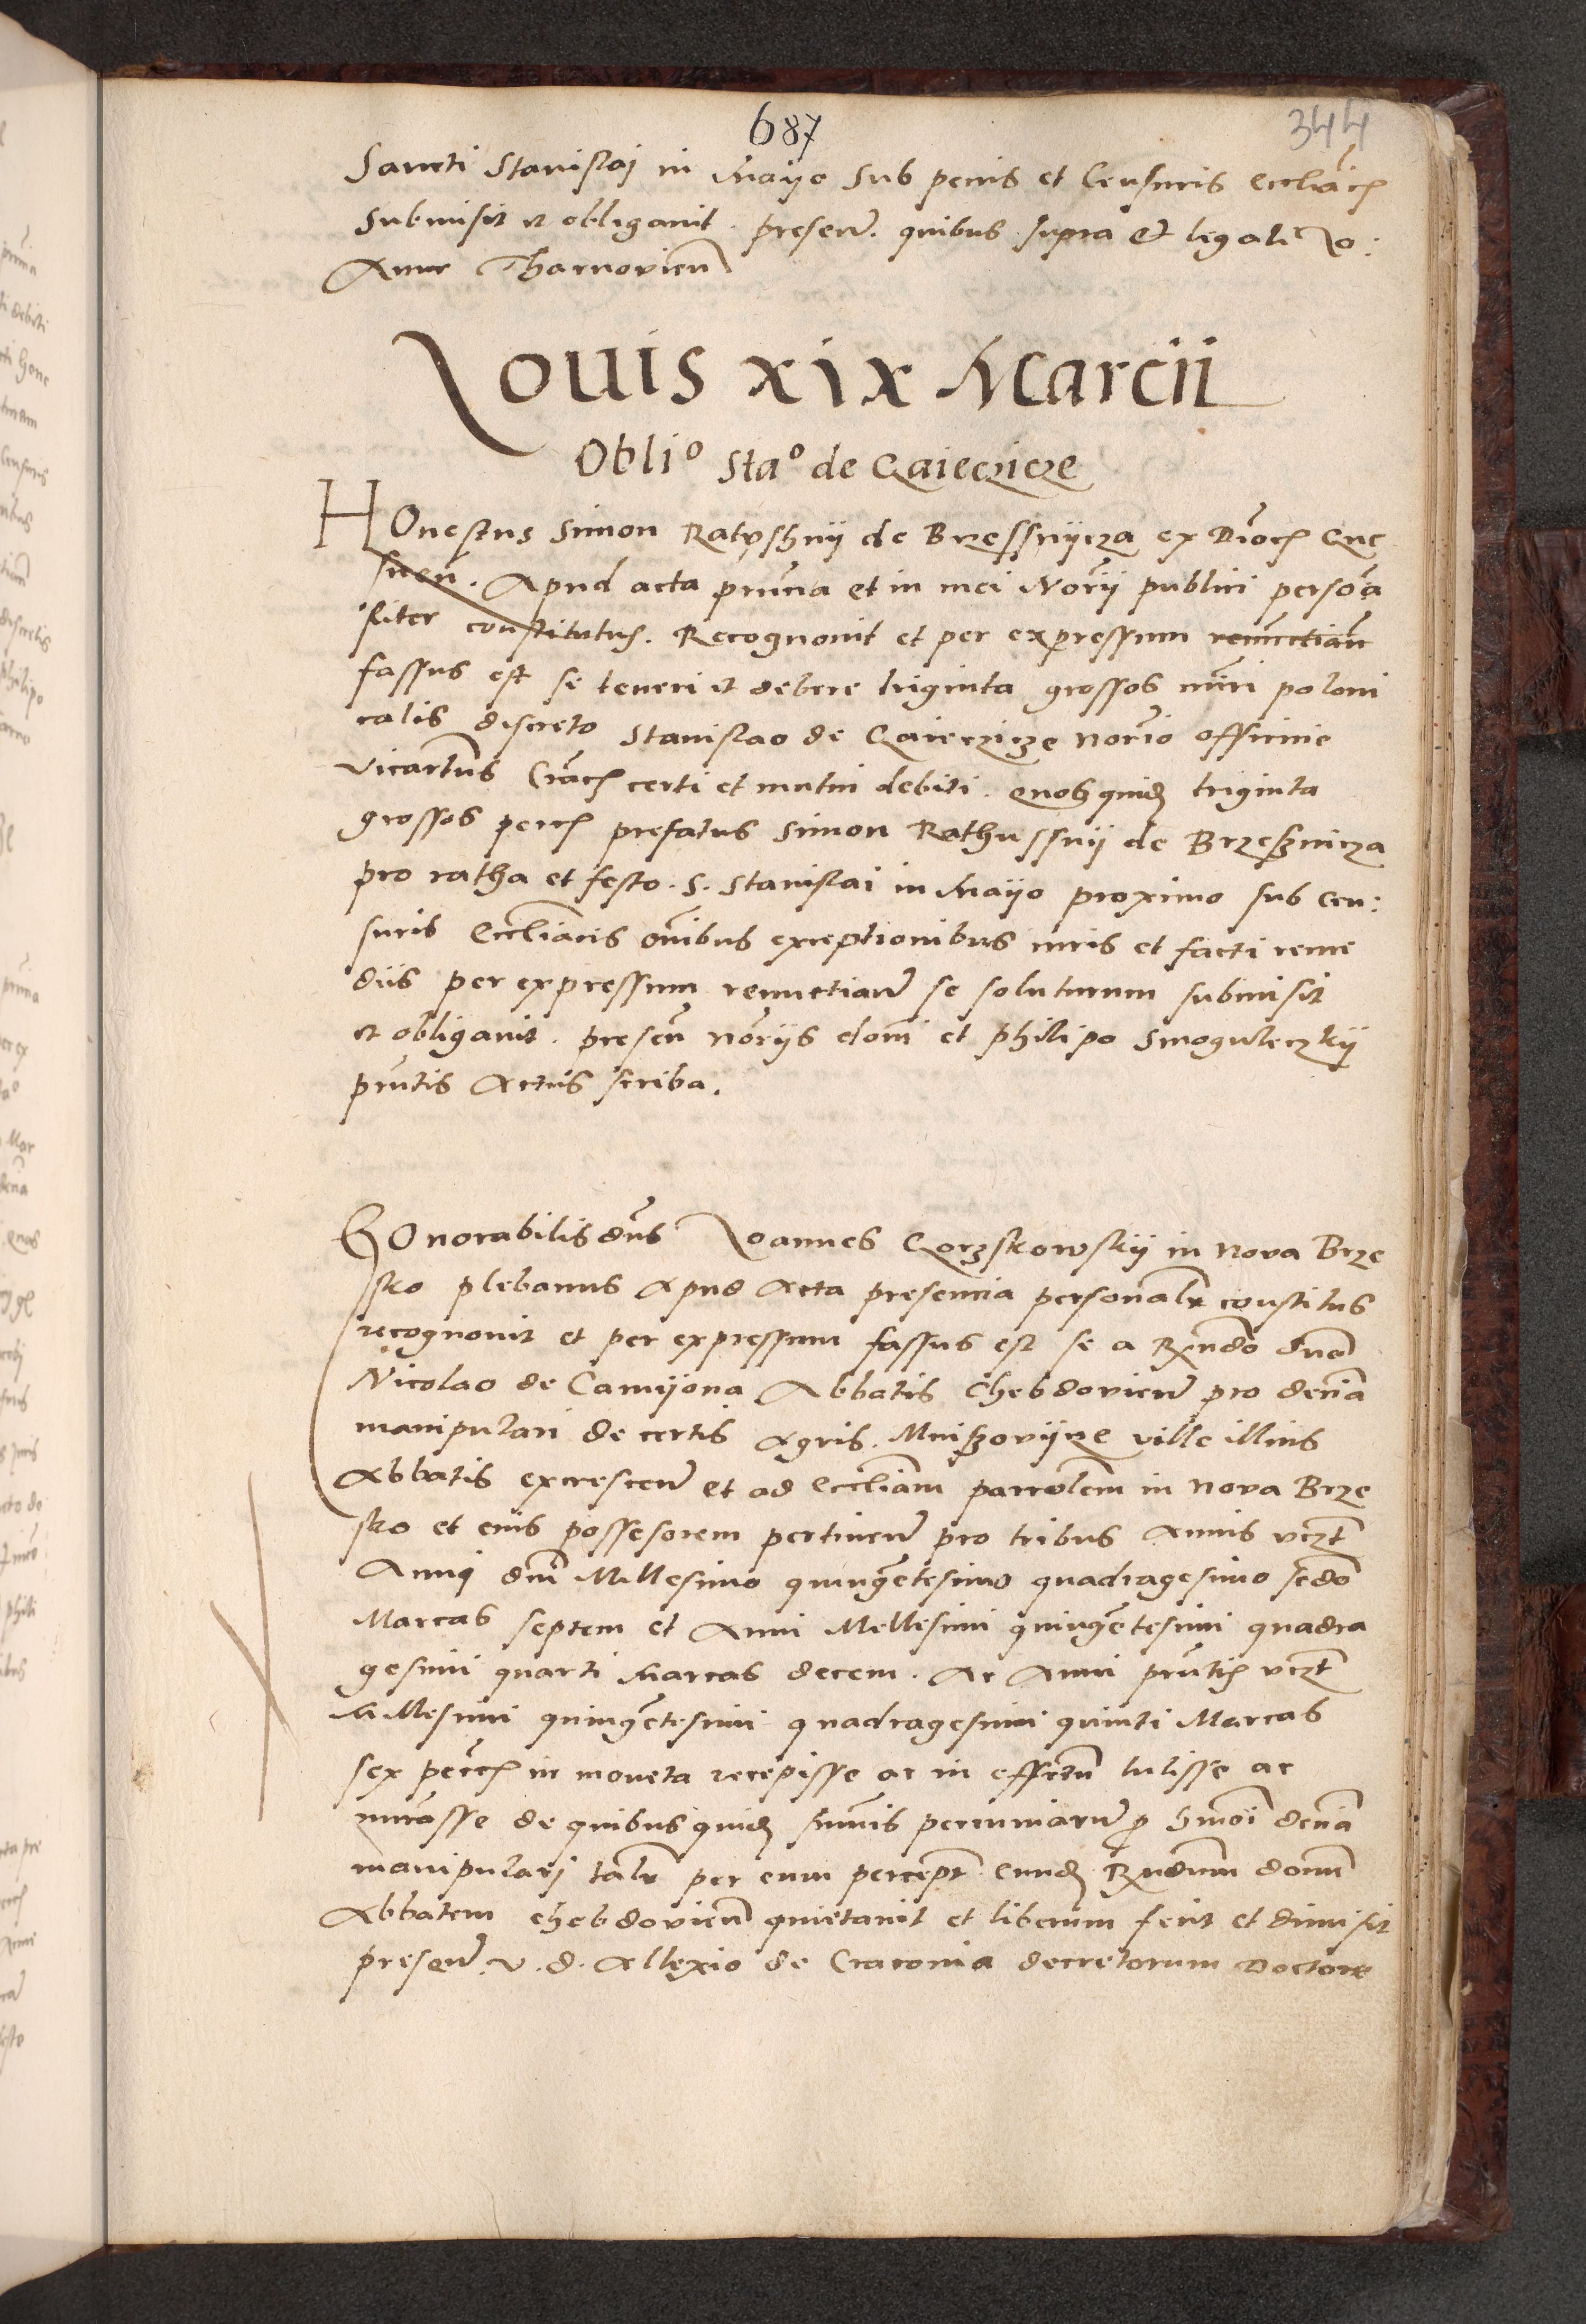 687
344
Sancti Stanislai in Mayo sub penis et Censuris eccliacz
submisit et obligavit. presen. quibus supra et legali Io:
Anne Tharnovien
Iouis xix Marcii
Oblio Stao de Gaieczicze
HOnestus Simon Ratuschnij de Brzessnijcza ex Dioc Gne
snen. Apud acta prnta et in mei Norij publici persoa
liter constitutus. Recognovit et per expressum renuctian
fassus est se teneri et debere triginta grossos mri poloni
calis discreto Stanislao de Gaieczicze norio officine
vicartus Crac certi et mutui debiti. quosquid triginta
grossos pecc prefatus Simon Rathussnij de Brzesznicza
pro ratha et festo. S. Stanislai in Mayo proximo sub cen:
suris Eccliacis oibus exceptionibus iuris et facti reme
diis per expressum renuctian se soluturum submisit
et obligavit. presen noriis domi et philipo Smoguleczkij
prntis Actus scriba.
HOnorabilis dns Ioannes Gorzskowskij in Nova Brze
sko plebanus Apud Acta presencia personalr constitus
recognovit et per expressum fassus est se a Rndo dno
Nicolao de Camijona Abbatis Chebdovien pro decia
manipulari de certis Agris. Mniszovijcze ville illius
Abbatis excrescen et ad eccliam parrolem in Nova Brze
sko et eius possesorem pertinen pro tribus Annis vczt
Anni dni Millesimo quingetesimo quadragesimo scdo
Marcas septem et Anni Mellesimi quingetesimi quadra
gesimi quarti Marcas decem. Ac Anni prntis vczt
Millesimi quingetesimi quadragesimi quinti Marcas
sex pecc in moneta recepisse ac in effectu tulisse ac
nurasse de quibusquid sumis pecuniaru p hmoi decia
manipulari talr per eum percept eund Rndum domi
Abbatem chebdovien quietavit et liberum fecit et dimisit
presen. v. d. Allexio de Cracovia decretorum Doctore